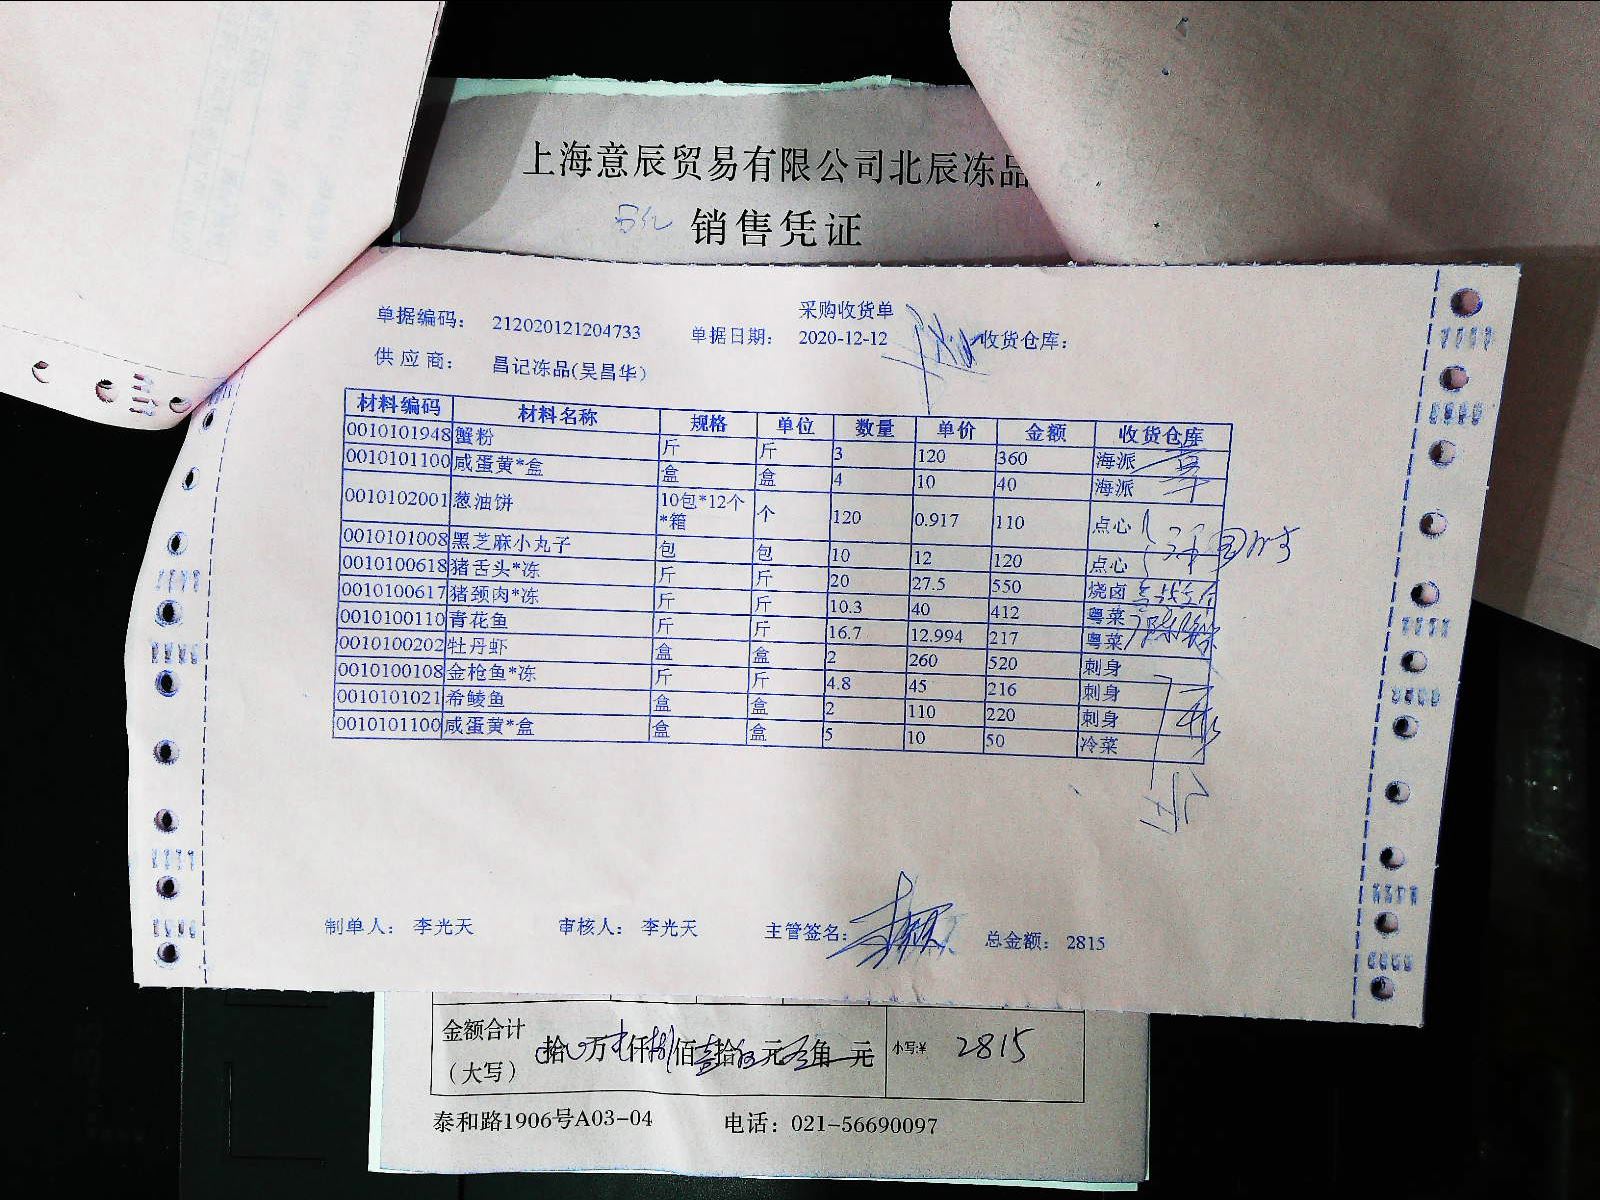 上海意辰贸易有限公司北辰冻品
销售凭证
采购收货单
单据编码： 212020121204733 单据日期： 2020-12-12 收货仓库：
供应商： 昌记冻品(吴昌华)
材料编码 材料名称 规格 单位 数量 单价 金额 收货仓库
0010101948 蟹粉 斤 斤 3 120 360 海派
0010101100 咸蛋黄*盒 盒 盒 4 10 40 海派
0010102001 葱油饼 10包*12个*箱 个 120 0.917 110 点心
0010101008 黑芝麻小丸子 包 包 10 12 120 点心
0010100618 猪舌头*冻 斤 斤 20 27.5 550 烧卤
0010100617 猪颈肉*冻 斤 斤 10.3 40 412 粤菜
0010100110 青花鱼 斤 斤 16.7 12.994 217 粤菜
0010100202 牡丹虾 盒 盒 2 260 520 刺身
0010100108 金枪鱼*冻 斤 斤 4.8 45 216 刺身
0010101021 希鲮鱼 盒 盒 2 110 220 刺身
0010101100 咸蛋黄*盒 盒 盒 5 10 50 冷菜
制单人： 李光天 审核人： 李光天 主管签名： 总金额： 2815
金额合计
（大写） 拾 万 仟 佰 拾 元 角 元 小写:¥ 2815
泰和路1906号A03-04 电话：021-56690097